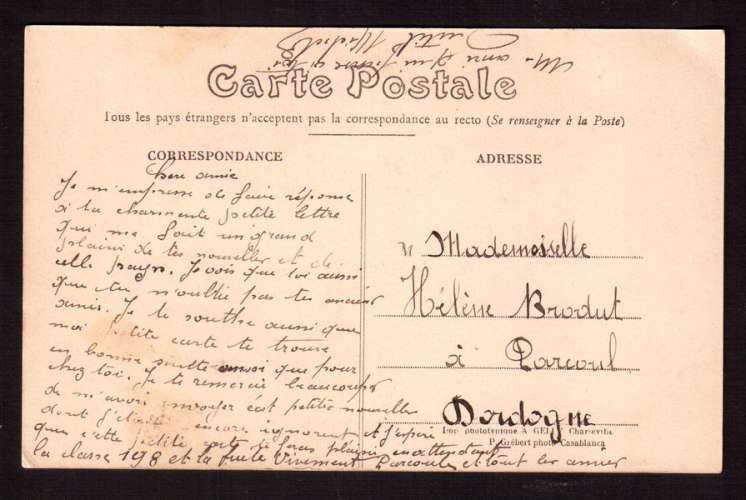 Carte Postale
Tous les pays étrangers n'acceptent pas la correspondance au recto (Se renseigner à la Poste)
CORRESPONDANCE
ADRESSE
Chere amie
Je m'empresse de faire réponse
a ta charmente petite lettre
que me fait un grand
plaisir de tes nouvelles et de
celle pays. Je vois que toi aussi
que tu n'oublie pas tes ancien
amis. Je te souhte aussi que
ma petite carte te trouve
en bonne santte ausoi que pour
chez toi. Je te remercie beaucoups
de m'avoir envoyer cest petite nouvelles
dont j'étais encore ignorent et j'espère
que cette petite carte te feras plaisir en attendant
la classe 198 et la fuite Vivement Parcoul et tout les amies
Mademoiselle
Hélène Brodut
à Parcoul
Dordogne
Imp phototypique A GELLY Charleville
P. Grébert photo Casablanca